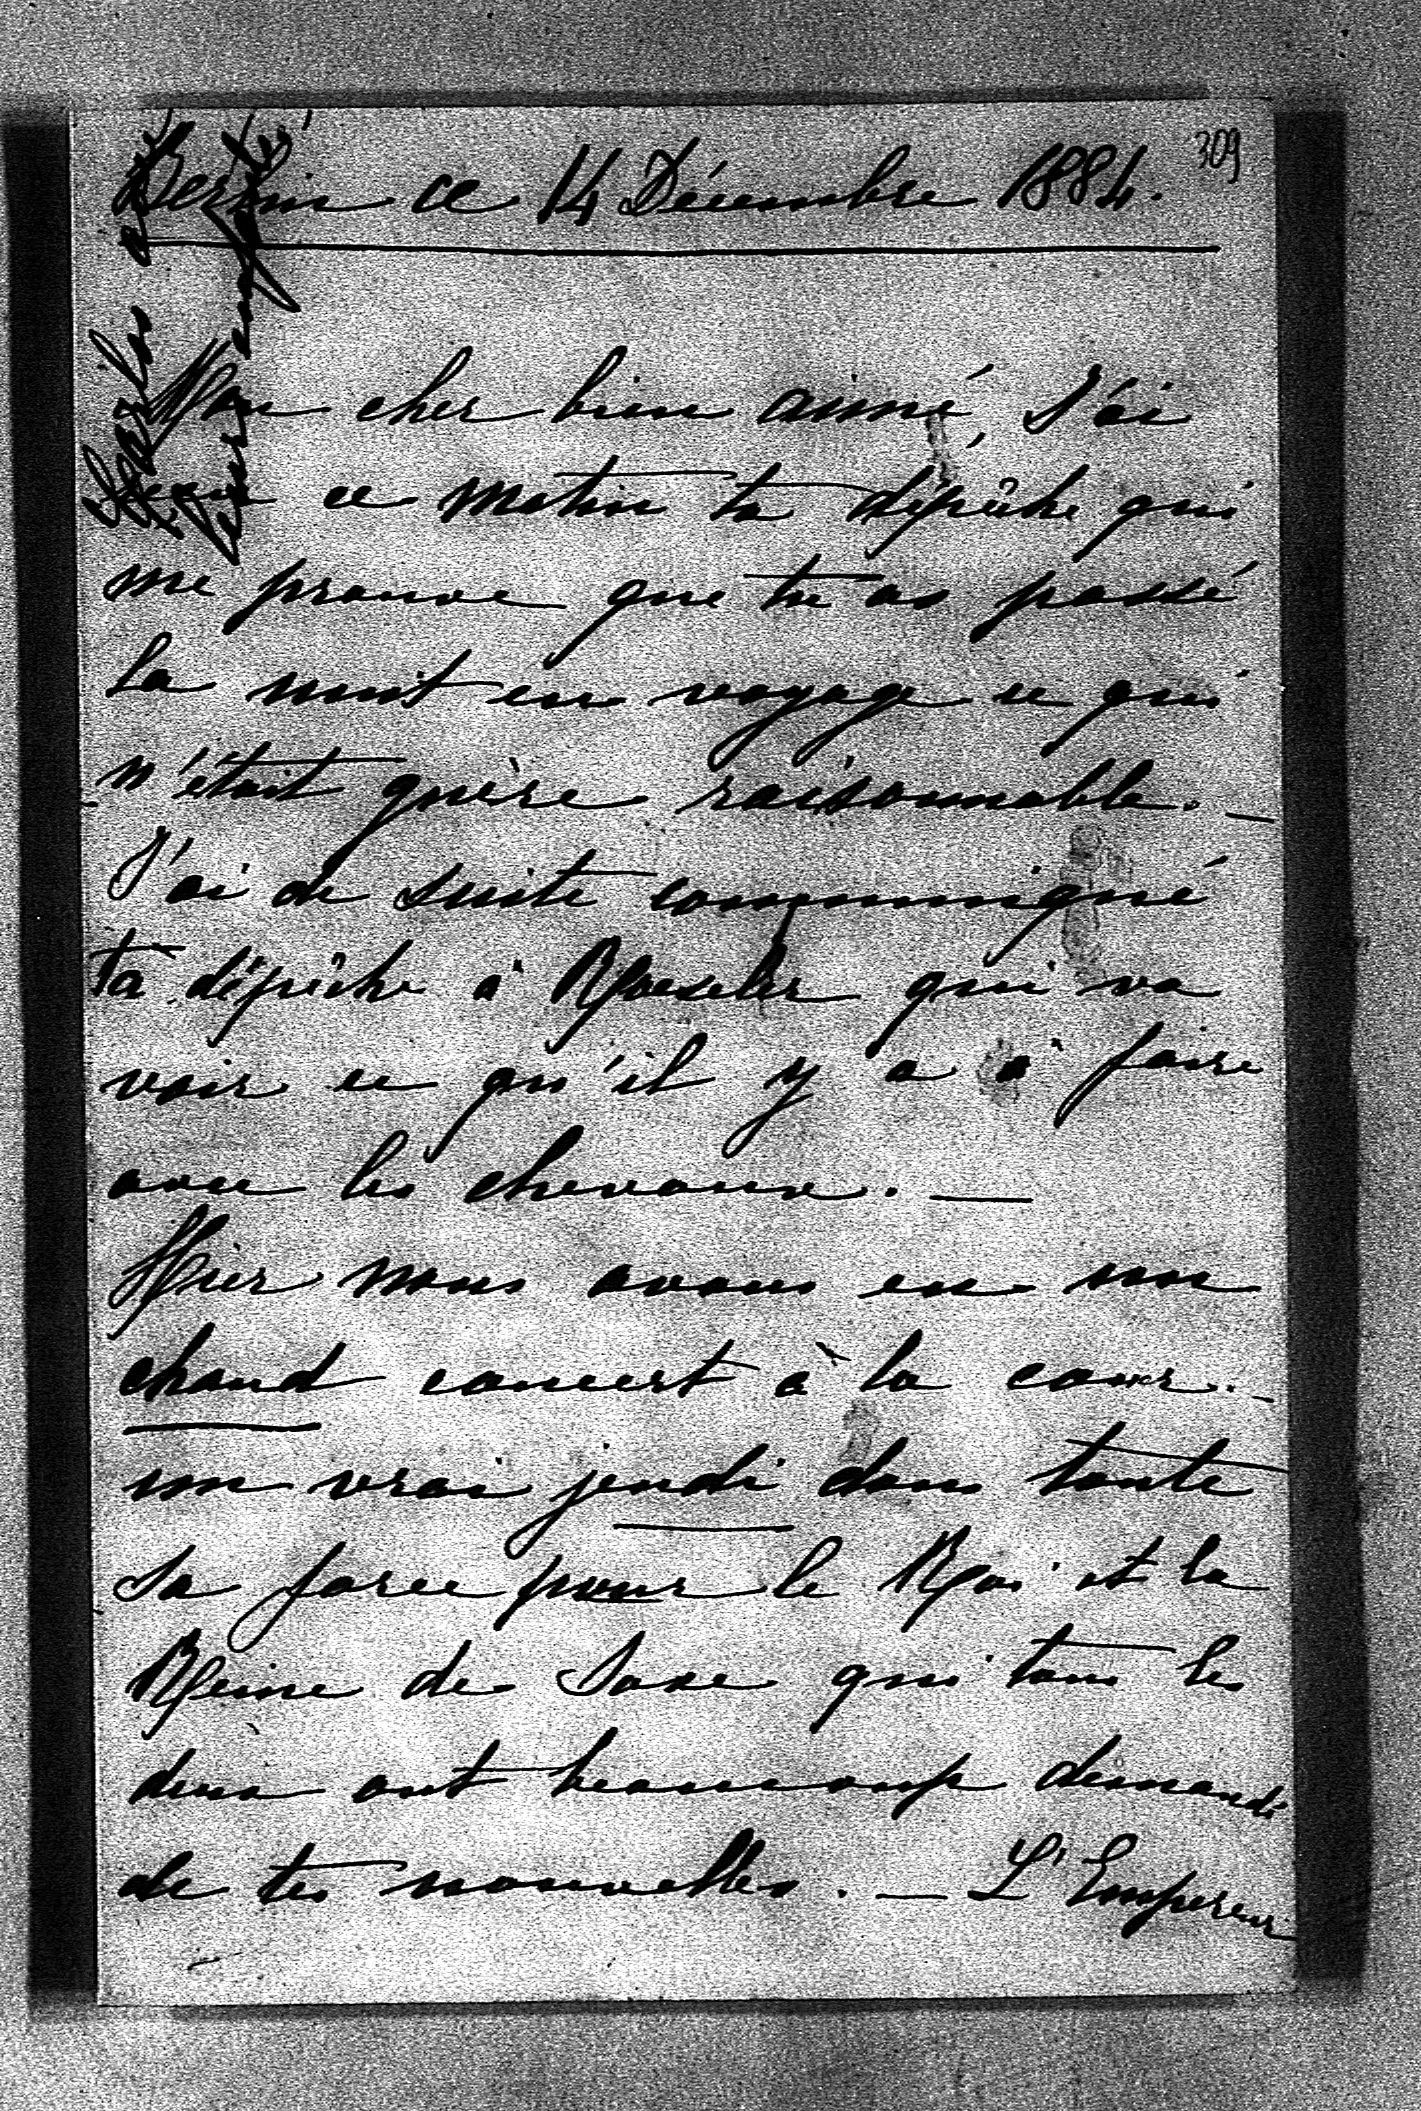 309
Berlin ce 14 Décembre 1884.
Mon cher bien aimé, J'ai
reçu ce matin ta dépêche qui
me prouve que tu as passé
la nuit en voyage ce qui
n'était guère raisonnable. —
J'ai de suite communiqué
ta dépêche à Roeseler qui va
voir ce qu'il y a à faire
avec les chevaux. —
Hier nous avons eu un
chaud concert à la cour. —
un vrai jeudi dans toute
sa force pour le Roi et la
Reine de Saxe qui tous les
deux ont beaucoup demandé
de tes nouvelles. — L'Empereur